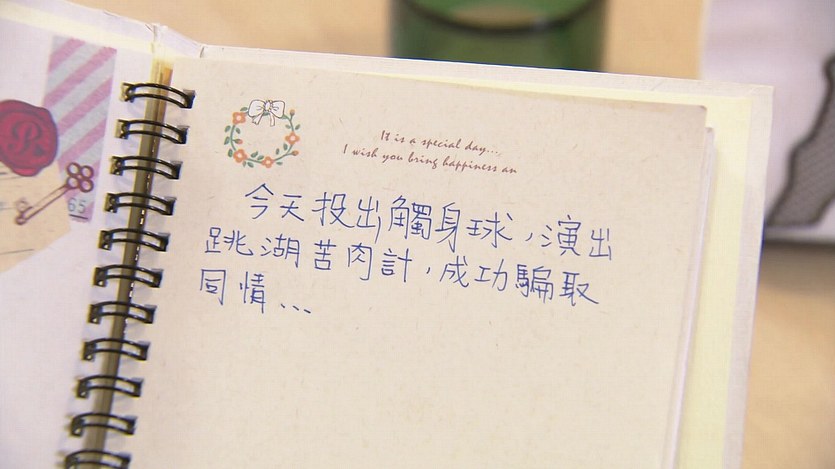 It is a special day...,
I wish you bring happiness an
今天投出觸身球,演出
跳湖苦肉計,成功騙取
同情...
65